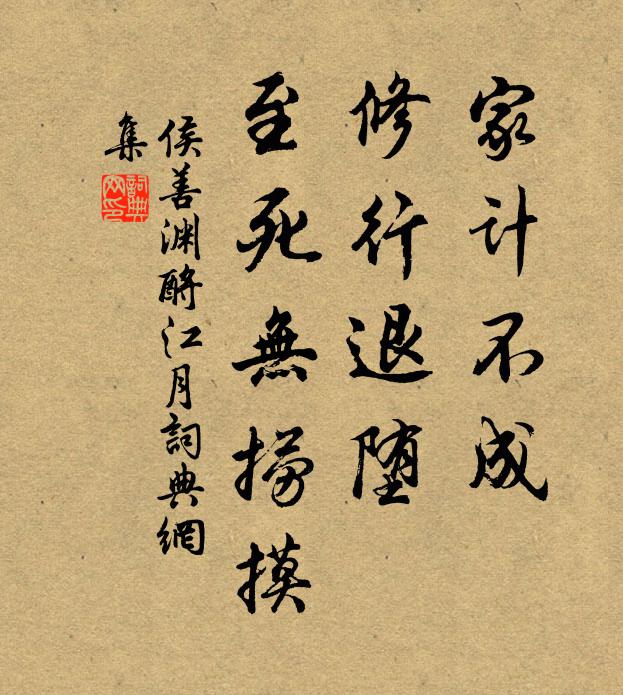 家计不成
修行退堕
至死無撈摸
侯善渊酹江月詞典網
集
詞典
网印